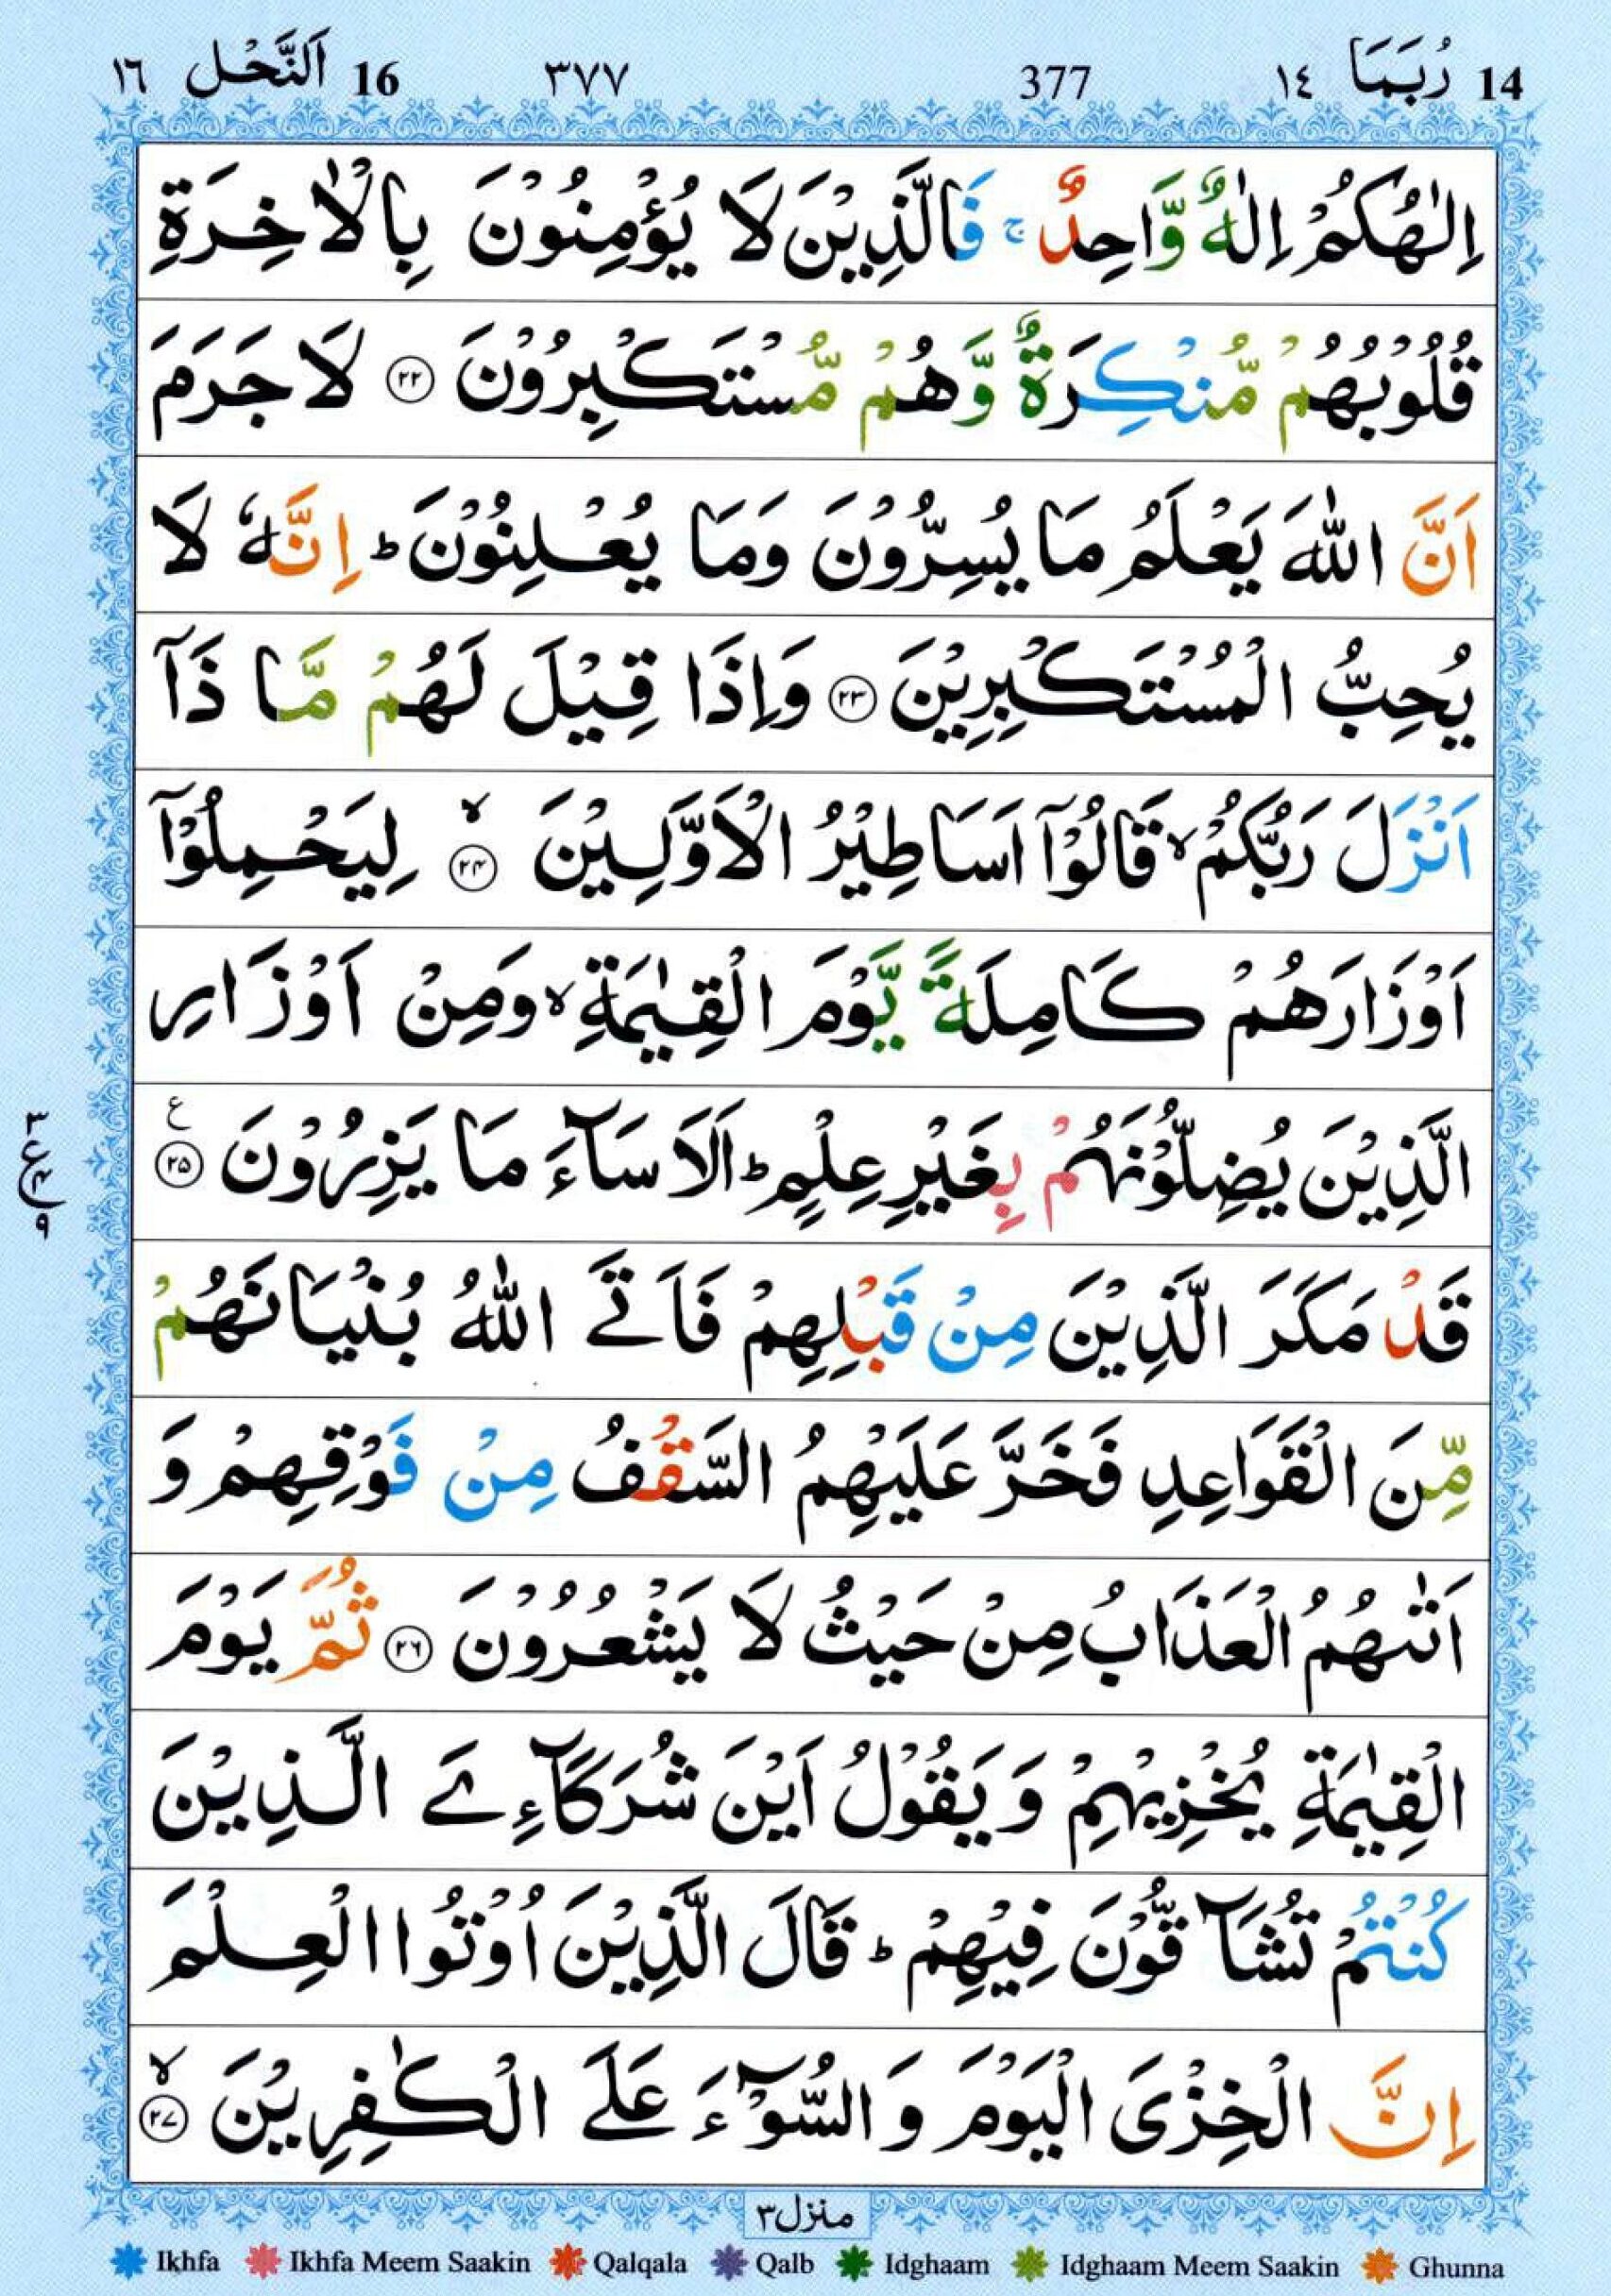 14 رُبَمَا ١٤ 377 ٣٧٧ 16 اَلنَّحْل ١٦
اِلٰـهُكُمْ اِلٰهٌ وَّاحِدٌ ۚ فَالَّذِيْنَ لَا يُؤْمِنُوْنَ بِالْاٰخِرَةِ
قُلُوْبُهُمْ مُّنْكِرَةٌ وَّهُمْ مُّسْتَكْبِرُوْنَ ﴿۲۲﴾ لَا جَرَمَ
اَنَّ اللّٰهَ يَعْلَمُ مَا يُسِرُّوْنَ وَمَا يُعْلِنُوْنَ ؕ اِنَّهٗ لَا
يُحِبُّ الْمُسْتَكْبِرِيْنَ ﴿۲۳﴾ وَاِذَا قِيْلَ لَهُمْ مَّا ذَاۤ
اَنْزَلَ رَبُّكُمْ ۙ قَالُوْۤا اَسَاطِيْرُ الْاَوَّلِيْنَ ۙ﴿۲۴﴾ لِيَحْمِلُوْۤا
اَوْزَارَهُمْ كَامِلَةً يَّوْمَ الْقِيٰمَةِ ۙ وَمِنْ اَوْزَارِ
الَّذِيْنَ يُضِلُّوْنَهُمْ بِغَيْرِ عِلْمٍ ؕ اَلَا سَآءَ مَا يَزِرُوْنَ ﴿۲۵﴾ ع
٣ ع ۴ ۹
قَدْ مَكَرَ الَّذِيْنَ مِنْ قَبْلِهِمْ فَاَتَى اللّٰهُ بُنْيَانَهُمْ
مِّنَ الْقَوَاعِدِ فَخَرَّ عَلَيْهِمُ السَّقْفُ مِنْ فَوْقِهِمْ وَ
اَتٰىهُمُ الْعَذَابُ مِنْ حَيْثُ لَا يَشْعُرُوْنَ ﴿۲۶﴾ ثُمَّ يَوْمَ
الْقِيٰمَةِ يُخْزِيْهِمْ وَ يَقُوْلُ اَيْنَ شُرَكَآءِىَ الَّذِيْنَ
كُنْتُمْ تُشَآقُّوْنَ فِيْهِمْ ؕ قَالَ الَّذِيْنَ اُوْتُوا الْعِلْمَ
اِنَّ الْخِزْىَ الْيَوْمَ وَ السُّوْٓءَ عَلَى الْكٰفِرِيْنَ ۙ﴿۲۷﴾
منزل ۳
Ikhfa Ikhfa Meem Saakin Qalqala Qalb Idghaam Idghaam Meem Saakin Ghunna